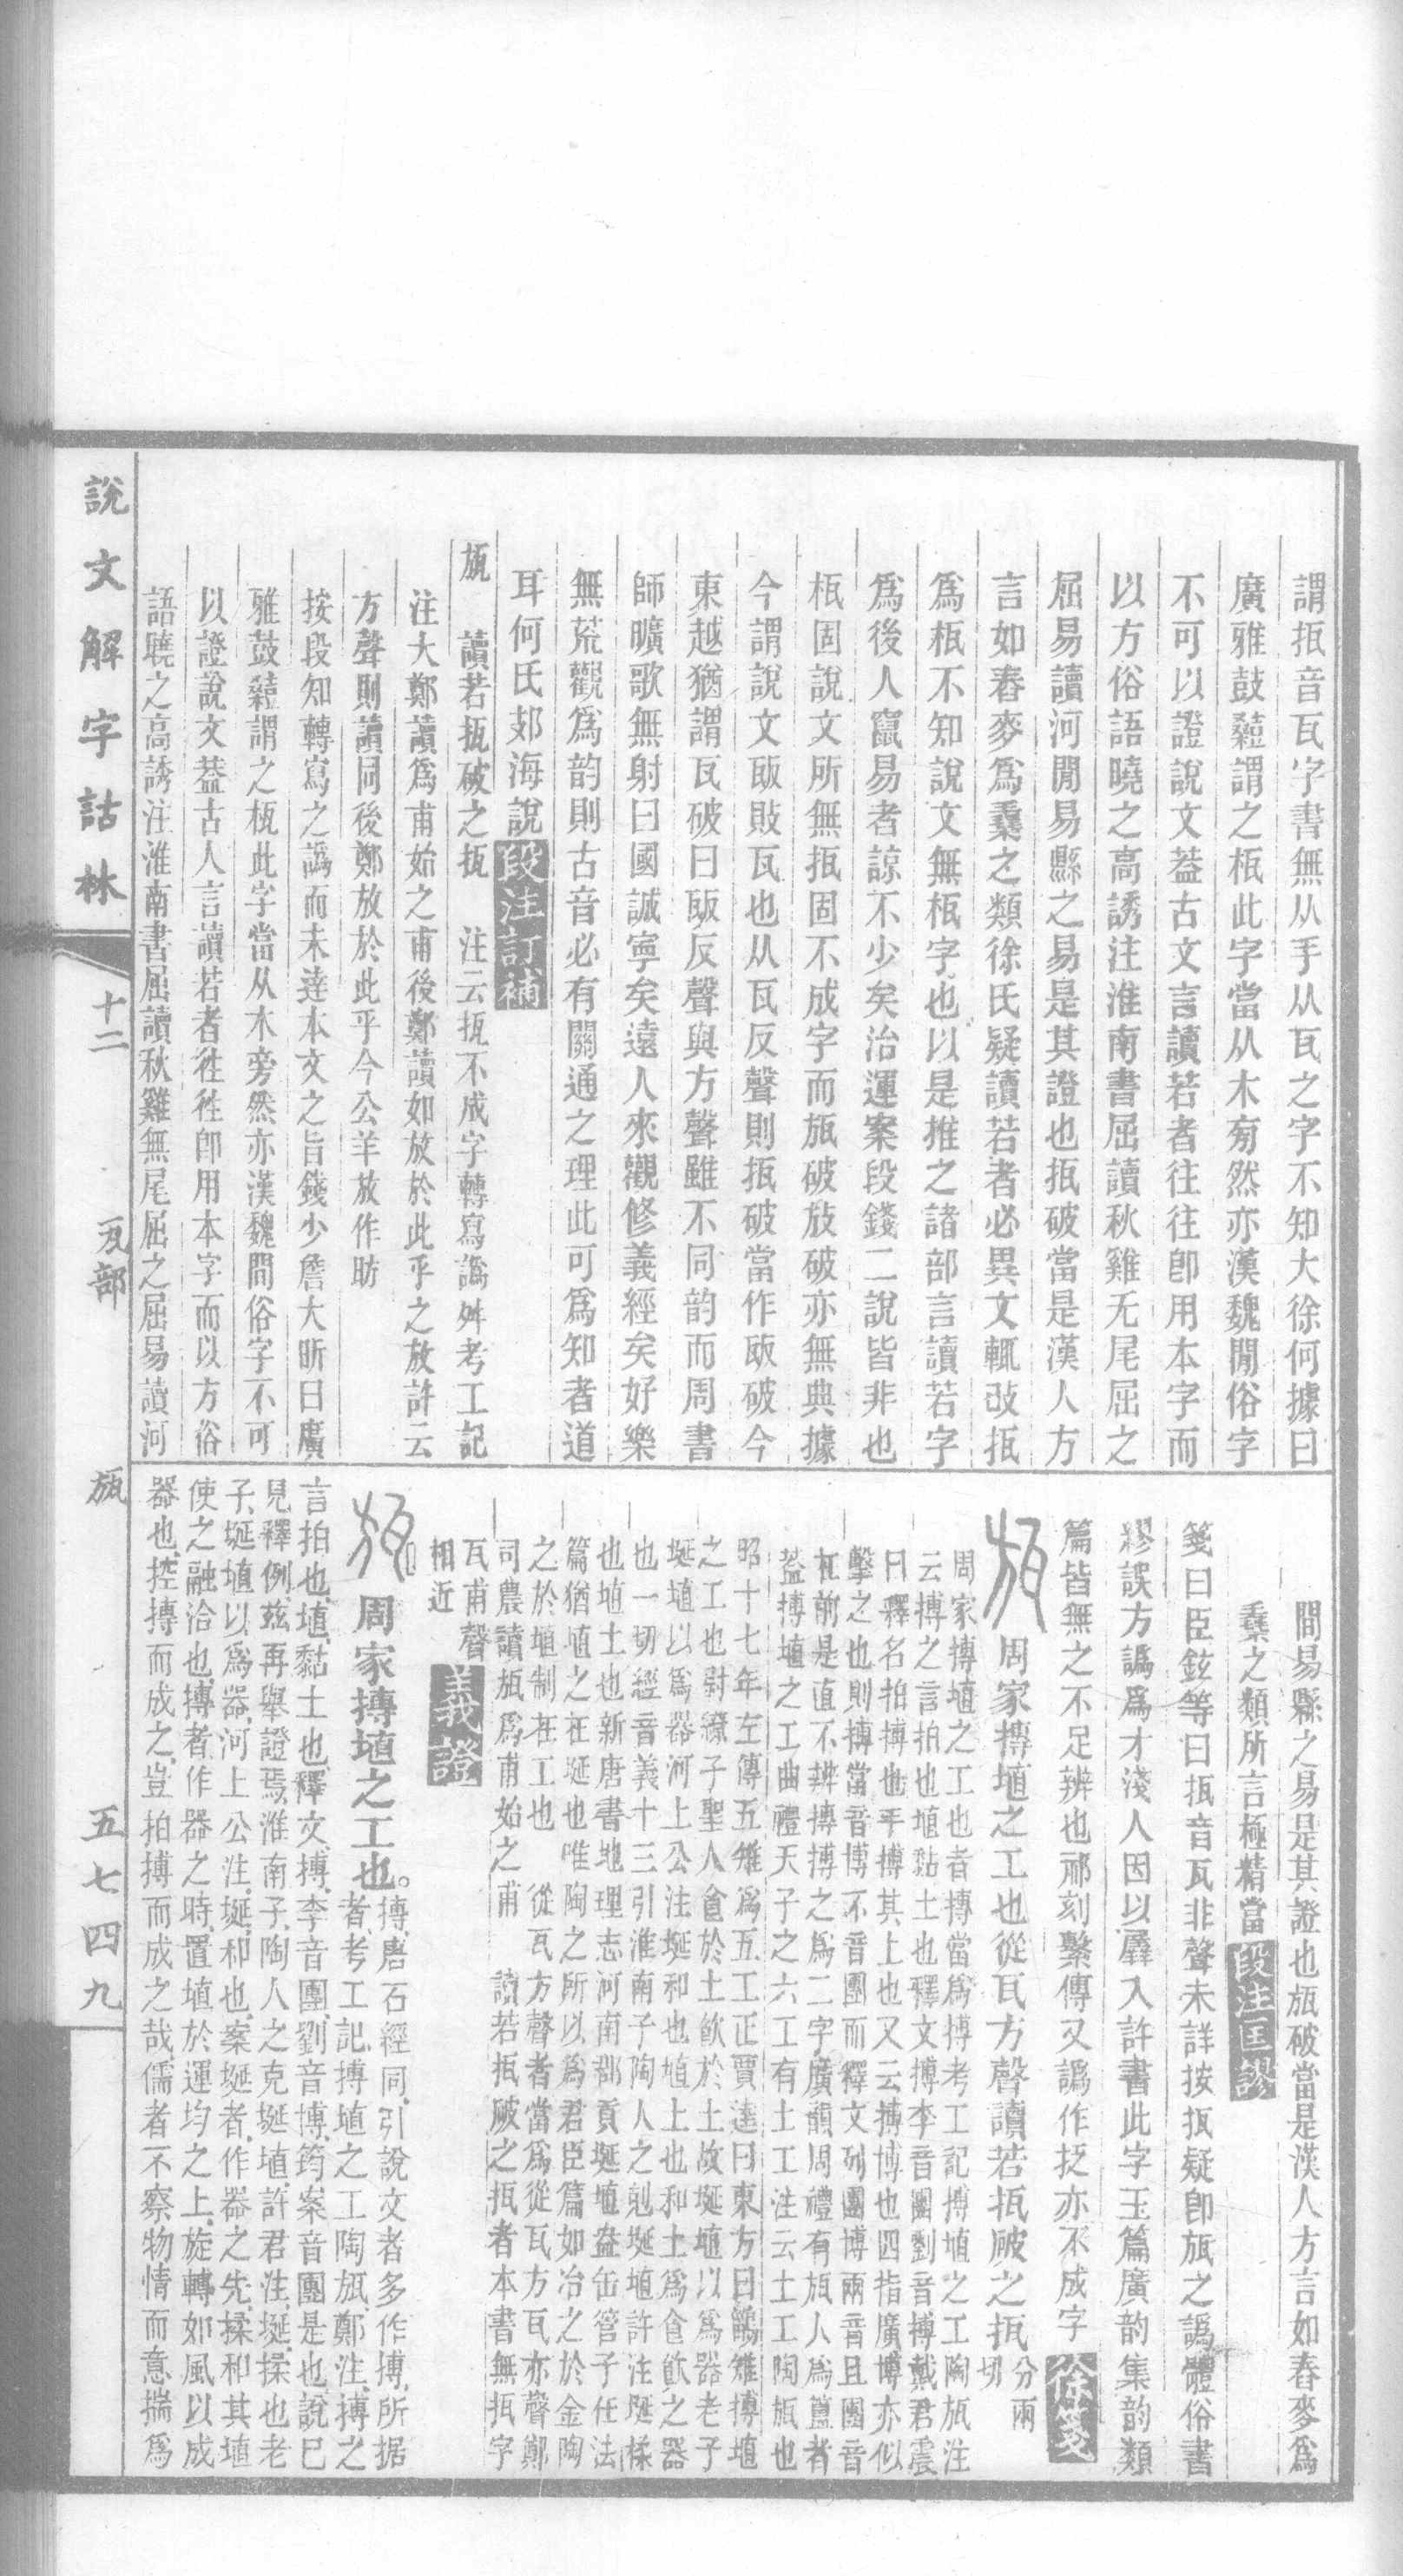 謂抵音瓦字書無从手从瓦之字不知大徐何據曰
廣雅鼓鼙謂之柢此字當从木旁然亦漢魏閒俗字
不可以證說文葢古文言讀若者往往卽用本字而
以方俗語曉之高誘注淮南書屈讀秋雞无尾屈之
屈易讀河閒易縣之易是其證也抵破當是漢人方
言如舂麥爲𣫔之類徐氏疑讀若者必異文輒改
爲不知說文無字也以是推之諸部言讀若字
爲後人竄易者諒不少矣治運案段錢二說皆非也
固說文所無固不成字而瓬破放破亦無典據
今謂說文瓪敗瓦也从瓦反聲則破當作瓪破今
東越猶謂瓦破曰瓪反聲與方聲雖不同韵而周書
師曠歌無射曰國誠寧矣遠人來觀修義經矣好樂
無荒觀爲韵則古音必有關通之理此可爲知者道
耳何氏郊海說段注訂補
瓬 讀若㼚破之㼚 注云㼚不成字轉寫譌舛考工記
注大鄭讀爲甫始之甫後鄭讀如放於此乎之放許云
方聲則讀同後鄭放於此乎今公羊放作昉
按段知轉寫之譌而未達本文之旨錢少詹大昕曰廣
雅鼓鼙謂之此字當从木旁然亦漢魏間俗字不可
以證說文葢古人言讀若者徃徃卽用本字而以方俗
語曉之高誘注淮南書屈讀秋雞無尾屈之屈易讀河
間易縣之易是其證也瓬破當是漢人方言如舂麥爲
之類所言極精當段注匡謬
箋曰臣鉉等曰音瓦非聲未詳按疑卽瓬之譌體俗書
繆誤方譌爲才淺人因以羼入許書此字玉篇廣韵集韵類
篇皆無之不足辨也祁刻繫傳又譌作抂亦不成字徐箋
瓬 周家摶埴之工也從瓦方聲讀若破之 分兩切
周家摶埴之工也者摶當爲搏考工記搏埴之工陶瓬注
云搏之言拍也埴黏土也釋文搏李音團劉音搏戴君震
曰釋名拍搏也手搏其上也又云搏博也四指廣博亦似
擊之也則搏當音博不音團而釋文列團博兩音且團音
在前是直不辨摶搏之爲二字廣韻周禮有瓬人爲簋者
葢摶埴之工曲禮天子之六工有土工注云土工陶瓬也
昭十七年左傳五雉爲五工正賈逵曰東方曰鶅雉搏埴
之工也尉繚子聖人食於土飲於土故埏埴以爲器老子
埏埴以爲器河上公注埏和也埴土也和土爲食飲之器
也一切經音義十三引淮南子陶人之剋埏埴許注埏揉
也埴土也新唐書地理志河南郡貢埏埴盎缶管子任法
篇猶埴之在埏也唯陶之所以爲君臣篇如冶之於金陶
之於埴制在工也 從瓦方聲者當爲從瓦方瓦亦聲鄭
司農讀瓬爲甫始之甫 讀若破之者本書無字
瓦甫聲
相近義證
瓬 周家摶埴之工也。摶,唐石經同,引說文者多作搏,所据
者,考工記,搏埴之工陶瓬,鄭注,搏之
言拍也,埴,黏土也,釋文,搏,李音團,劉音博,筠案音團是也,說已
見釋例,兹再舉證焉,淮南子,陶人之克埏埴,許君注,埏,揉也,老
子,埏埴以爲器,河上公注,埏,和也,案埏者,作器之先,揉和其埴
使之融洽也,摶者,作器之時,置埴於運均之上,旋轉如風以成
器也,控摶而成之,豈拍搏而成之哉,儒者不察物情而意揣爲
說文解字詁林 十二 瓦部 瓬 五七四九